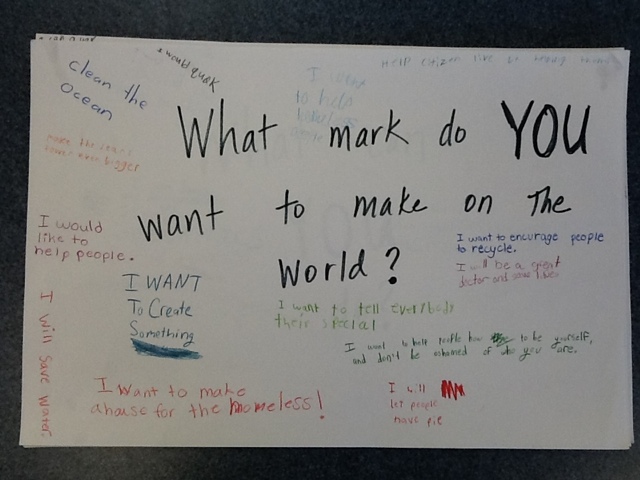 clean the
Ocean
I would
I want
to help
Help citizen live
What mark do YOU
want to make on The
World?
I would
like to
help people.
I want to encurage people
to recycle.
I will be a great
doctor and save lives
I WANT
To Create
Something
I want to tell everybody
their special
I want to help people how to be yourself,
and don't be ashamed of who you are.
I will save water.
I Want to make
a house for the homeless!
I will
let people
have pie